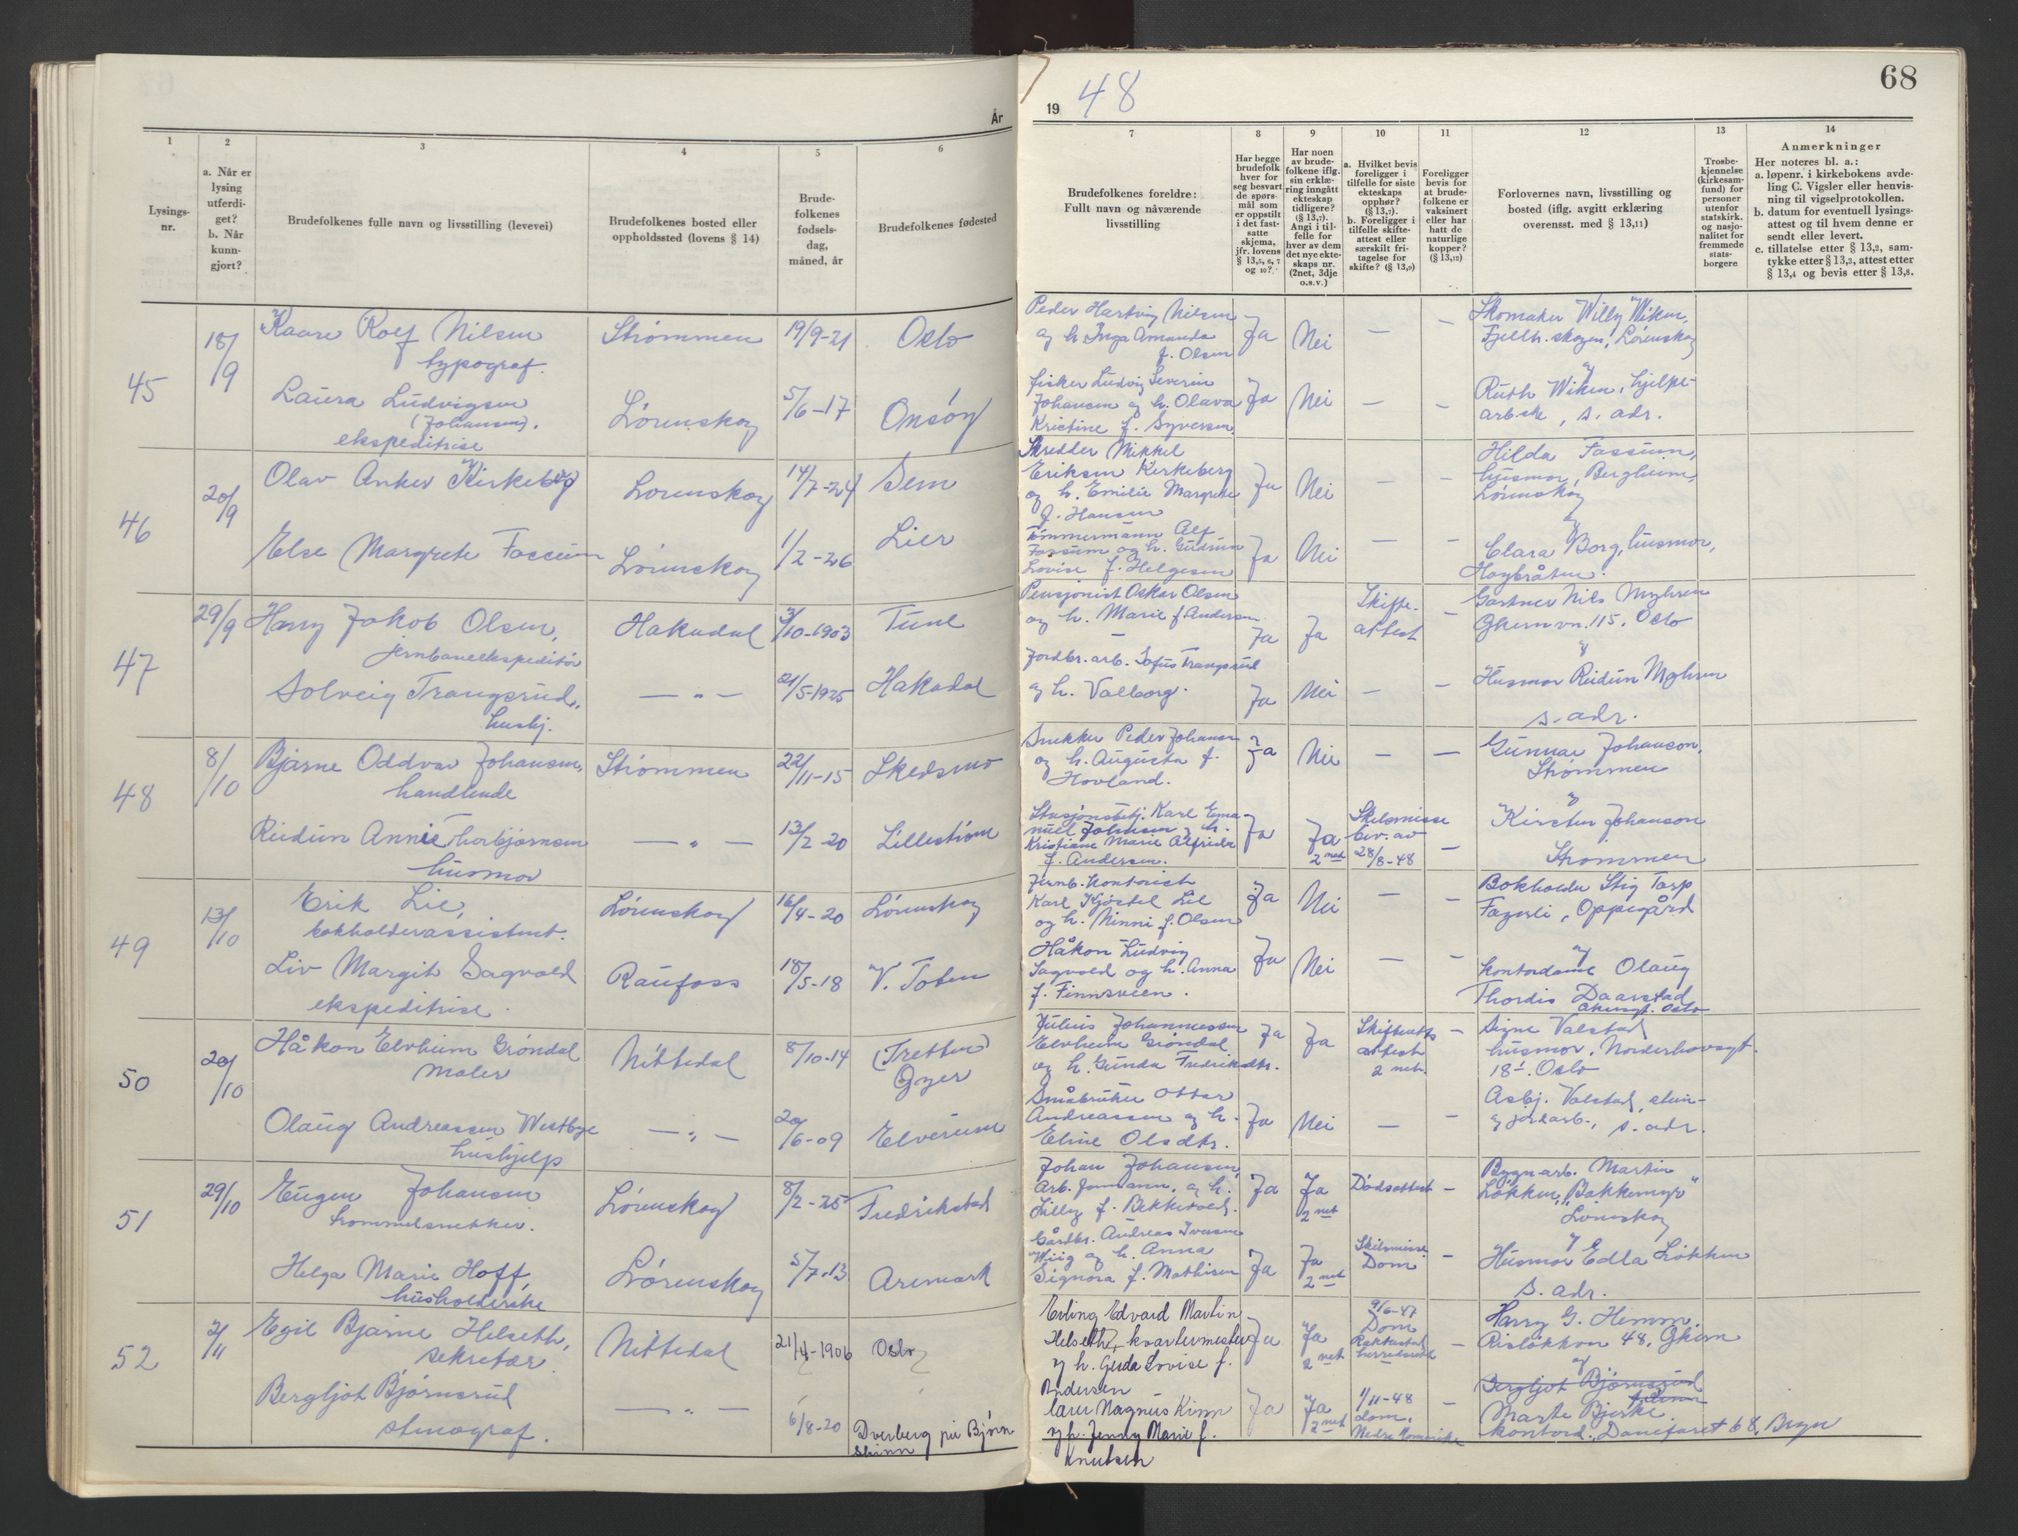 År
1948
68
1
2
3
4
5
6
7
8
9
10
11
12
13
14
Lysings-
nr.
a. Når er
lysing
utferdi-
get?
b. Når
kunn-
gjort?
Brudefolkenes fulle navn og livsstilling (levevei)
Brudefolkenes bosted eller
oppholdssted (lovens § 14)
Brude-
folkenes
fødsels-
dag,
måned, år
Brudefolkenes fødested
Brudefolkenes foreldre:
Fullt navn og nåværende
livsstilling
Har begge
brudefolk
hver for
seg besvart
de spørs-
mål som
er oppstilt
i det fast-
satte
skjema,
jfr. lovens
§ 13,5, 6, 7
og 10?
Har noen
av brude-
folkene iflg.
sin erklæ-
ring inngått
ekteskap
tidligere?
(§ 13,7).
Angi i til-
felle for
hver av dem
det nye ekte-
skaps nr.
(2net, 3dje
o.s.v.)
a. Hvilket bevis
foreligger i
tilfelle for siste
ekteskaps
opphør?
(§ 13,7).
b. Foreligger i
tilfelle skifte-
attest eller
særskilt fri-
tagelse for
skifte? (§ 13,9)
Foreligger
bevis for
at brude-
folkene er
vaksinert
eller har
hatt de
naturlige
kopper?
(§ 13,12)
Forlovernes navn, livsstilling og
bosted (iflg. avgitt erklæring
overensst. med § 13,11)
Trosbe-
kjennelse
(kirkesam-
fund) for
personer
utenfor
statskirk.
og nasjo-
nalitet for
fremmede
stats-
borgere
Anmerkninger
Her noteres bl. a.:
a. løpenr. i kirkebokens avde-
ling C. Vigsler eller henvis-
ning til vigselprotokollen.
b. datum for eventuell lysings-
attest og til hvem denne er
sendt eller levert.
c. tillatelse etter § 13,2, sam-
tykke etter § 13,3, attest etter
§ 13,4 og bevis etter § 13,8.
45
18/9
Kaare Rolf Nilsen
typograf.
Strømmen
19/9-21
Oslo
Peder Hartvig Nilsen
og h. Inga Amanda
f. Olsen
Ja
Nei
—
—
Skomaker Willy Wiken,
Fjellh. skogen, Lørenskog
Laura Ludvigsen
(Johansen).
ekspeditrise
Lørenskog
5/6-17
Onsøy
fisker Ludvig Severin
Johansen og h. Olava
Kristine f. Syversen
Ja
Nei
—
—
og
Ruth Wiken, hjelpe-
arbeske, s. adr.
46
20/9
Olav Anker Kirkeberg
Lørenskog
14/7-24
Sem
Skredder Mikkel
Eriksen Kirkeberg
og h. Emilie Margrete
f. Hansen
Ja
Nei
—
—
Hilda Fossum,
husmor, Bergheim,
Lørenskog
Else Margrete Fossum
Lørenskog
1/2-26
Lier
Tømmermann Alf
Fossum og h. Gudrun
Lovise f. Helgesen
Ja
Nei
—
—
og
Clara Borg, husmor,
Høybråten.
47
29/9
Harry Jakob Olsen,
jernbaneekspeditør
Hakadal
3/10-1903
Tune
Pensjonist Oskar Olsen
og h. Marie f. Andersen
—
Ja
Ja
Skifte-
attest
—
Gartner Nils Myhren
Økernvn. 115. Oslo
Solveig Trangsrud,
hushj.
— " —
21/5-1925
Hakadal
Jordbr. arb. Sofus Trangsrud
og h. Valborg.
Ja
Nei
—
—
og
Husmor Reidun Myhren
s. adr.
48
8/10
Bjarne Oddvar Johansen,
handlende
Strømmen
22/11-15
Skedsmo
Snekker Peder Johansen
og h. Augusta f.
Hovland.
Ja
Nei
—
—
Gunnar Johanson,
Strømmen
Reidun Annie Thorbjørnsen
husmor
— " —
13/2-20
Lillestrøm
Stasjonsbtj. Karl Ema
nuel Johnsen og h.
Kristiane Marie Alfrida
f. Andersen.
Ja
Ja
2 net
Skilsmisse
bev. av
28/8-48
—
og
Kirsten Johanson
Strømmen
49
13/10
Erik Lie,
bokholderassistent.
Lørenskog
16/4-20
Lørenskog
Jernb. kontorist
Karl Kjøstel Lie
og h. Ninni f. Olsen
Ja
Nei
—
—
Bokholder Stig Tarp
Fagerli, Oppegård
Liv Margit Sagvold
ekspeditrise.
Raufoss
18/5-18
V. Toten
Håkon Ludvig
Sagvold og h. Anna
f. Finnsveen.
Ja
Nei
—
—
og
kontordame Olaug
Thordis Daarstad
Akersgt. Oslo
50
20/10
Håkon Elvheim Grøndal
Maler
Nittedal
8/10-14
(Tretten)
Øyer
Julius Johannessen
Elvheim Grøndal
og h. Gunda Fredriksdtr.
Ja
Ja
Skifte
attest
2 net.
—
Signe Valstad
husmor. Norderhovsgt.
18I. Oslo
Olaug Andreassen Westbye
hushjelp
— " —
20/6-09
Elverum
Småbruker Otter
Andreassen og h.
Eline Olsdtr.
Ja
Nei
—
—
Asbj. Valstad, stein-
og jordarb., s. adr.
51
29/10
Eugen Johansen
trommelsnekker.
Lørenskog
8/2-25
Fredrikstad
Johan Johansen,
Arb. formann, og h.
Lilly f. Bekkevold.
Ja
Ja
2 net
Dødsattest
—
Bygn. arb. Martin
Løkken, "Bakkemyr"
Lørenskog
Helga Marie Hoff,
husholderske
Lørenskog
5/7-13
Aremark
Gårdbr. Andreas Iversen
Wiig og h. Anna
Signora f. Mathisen
Ja
Ja
2 net
Skilsmisse
Dom
—
og
Husmor Edla Løkken
s. adr.
52
2/11
Egil Bjarne Helseth,
sekretær
Nittedal
21/4-1906
Oslo
Erling Edvard Martin
Helseth, kvartermester
og h. Gerda Lovise f.
Andersen
Ja
Ja
2 net
9/6-47
Dom
herredsrett
—
Harry G. Hemm.
Risløkkvn 48, Økern
og
Bergljot Bjørnsrud
stenograf.
— " —
6/8-20
Dverberg på Bjørn
skinn
lærer Magnus Kinn
og h. Jenny Marie f.
Knutsen
Ja
Ja
2 net
1/11-48
dom.
Nedre Romerike
—
Bergljot Bjørnsrud
Marte Bjerke
kontord., Danefaret 68, Bryn